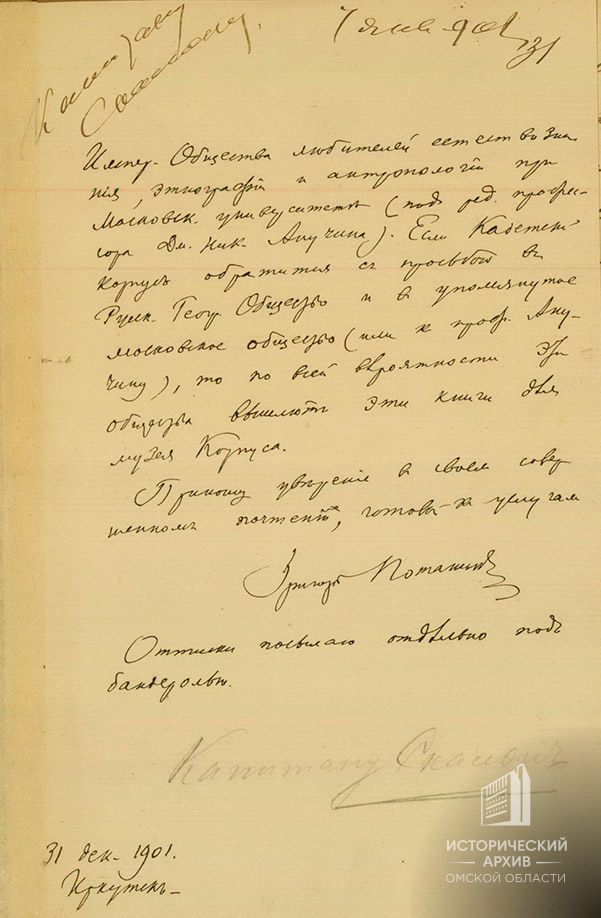 Капитану
7 янв 901
31
Импер. Общества любителей естествозна
нія, этнографіи и антропологіи при
Московск. университетѣ (подъ ред. профес-
сора Дм. Ник. Анучина). Если Кадетскій
корпусъ обратится съ просьбой въ
Русск. Геогр. Общество и въ упомянутое
московское общество (или к проф. Ану-
чину), то по всей вѣроятности эти
общества вышлютъ эти книги для
музея Корпуса.
Приношу увѣреніе в своем совер
шенномъ почтеніи, готовый къ услугам
Григорій Потанинъ
Оттиски посылаю отдѣльно подъ
бандеролью.
Капитану
31 дек. 1901.
Иркутскъ
ИСТОРИЧЕСКИЙ
АРХИВ
ОМСКОЙ ОБЛАСТИ